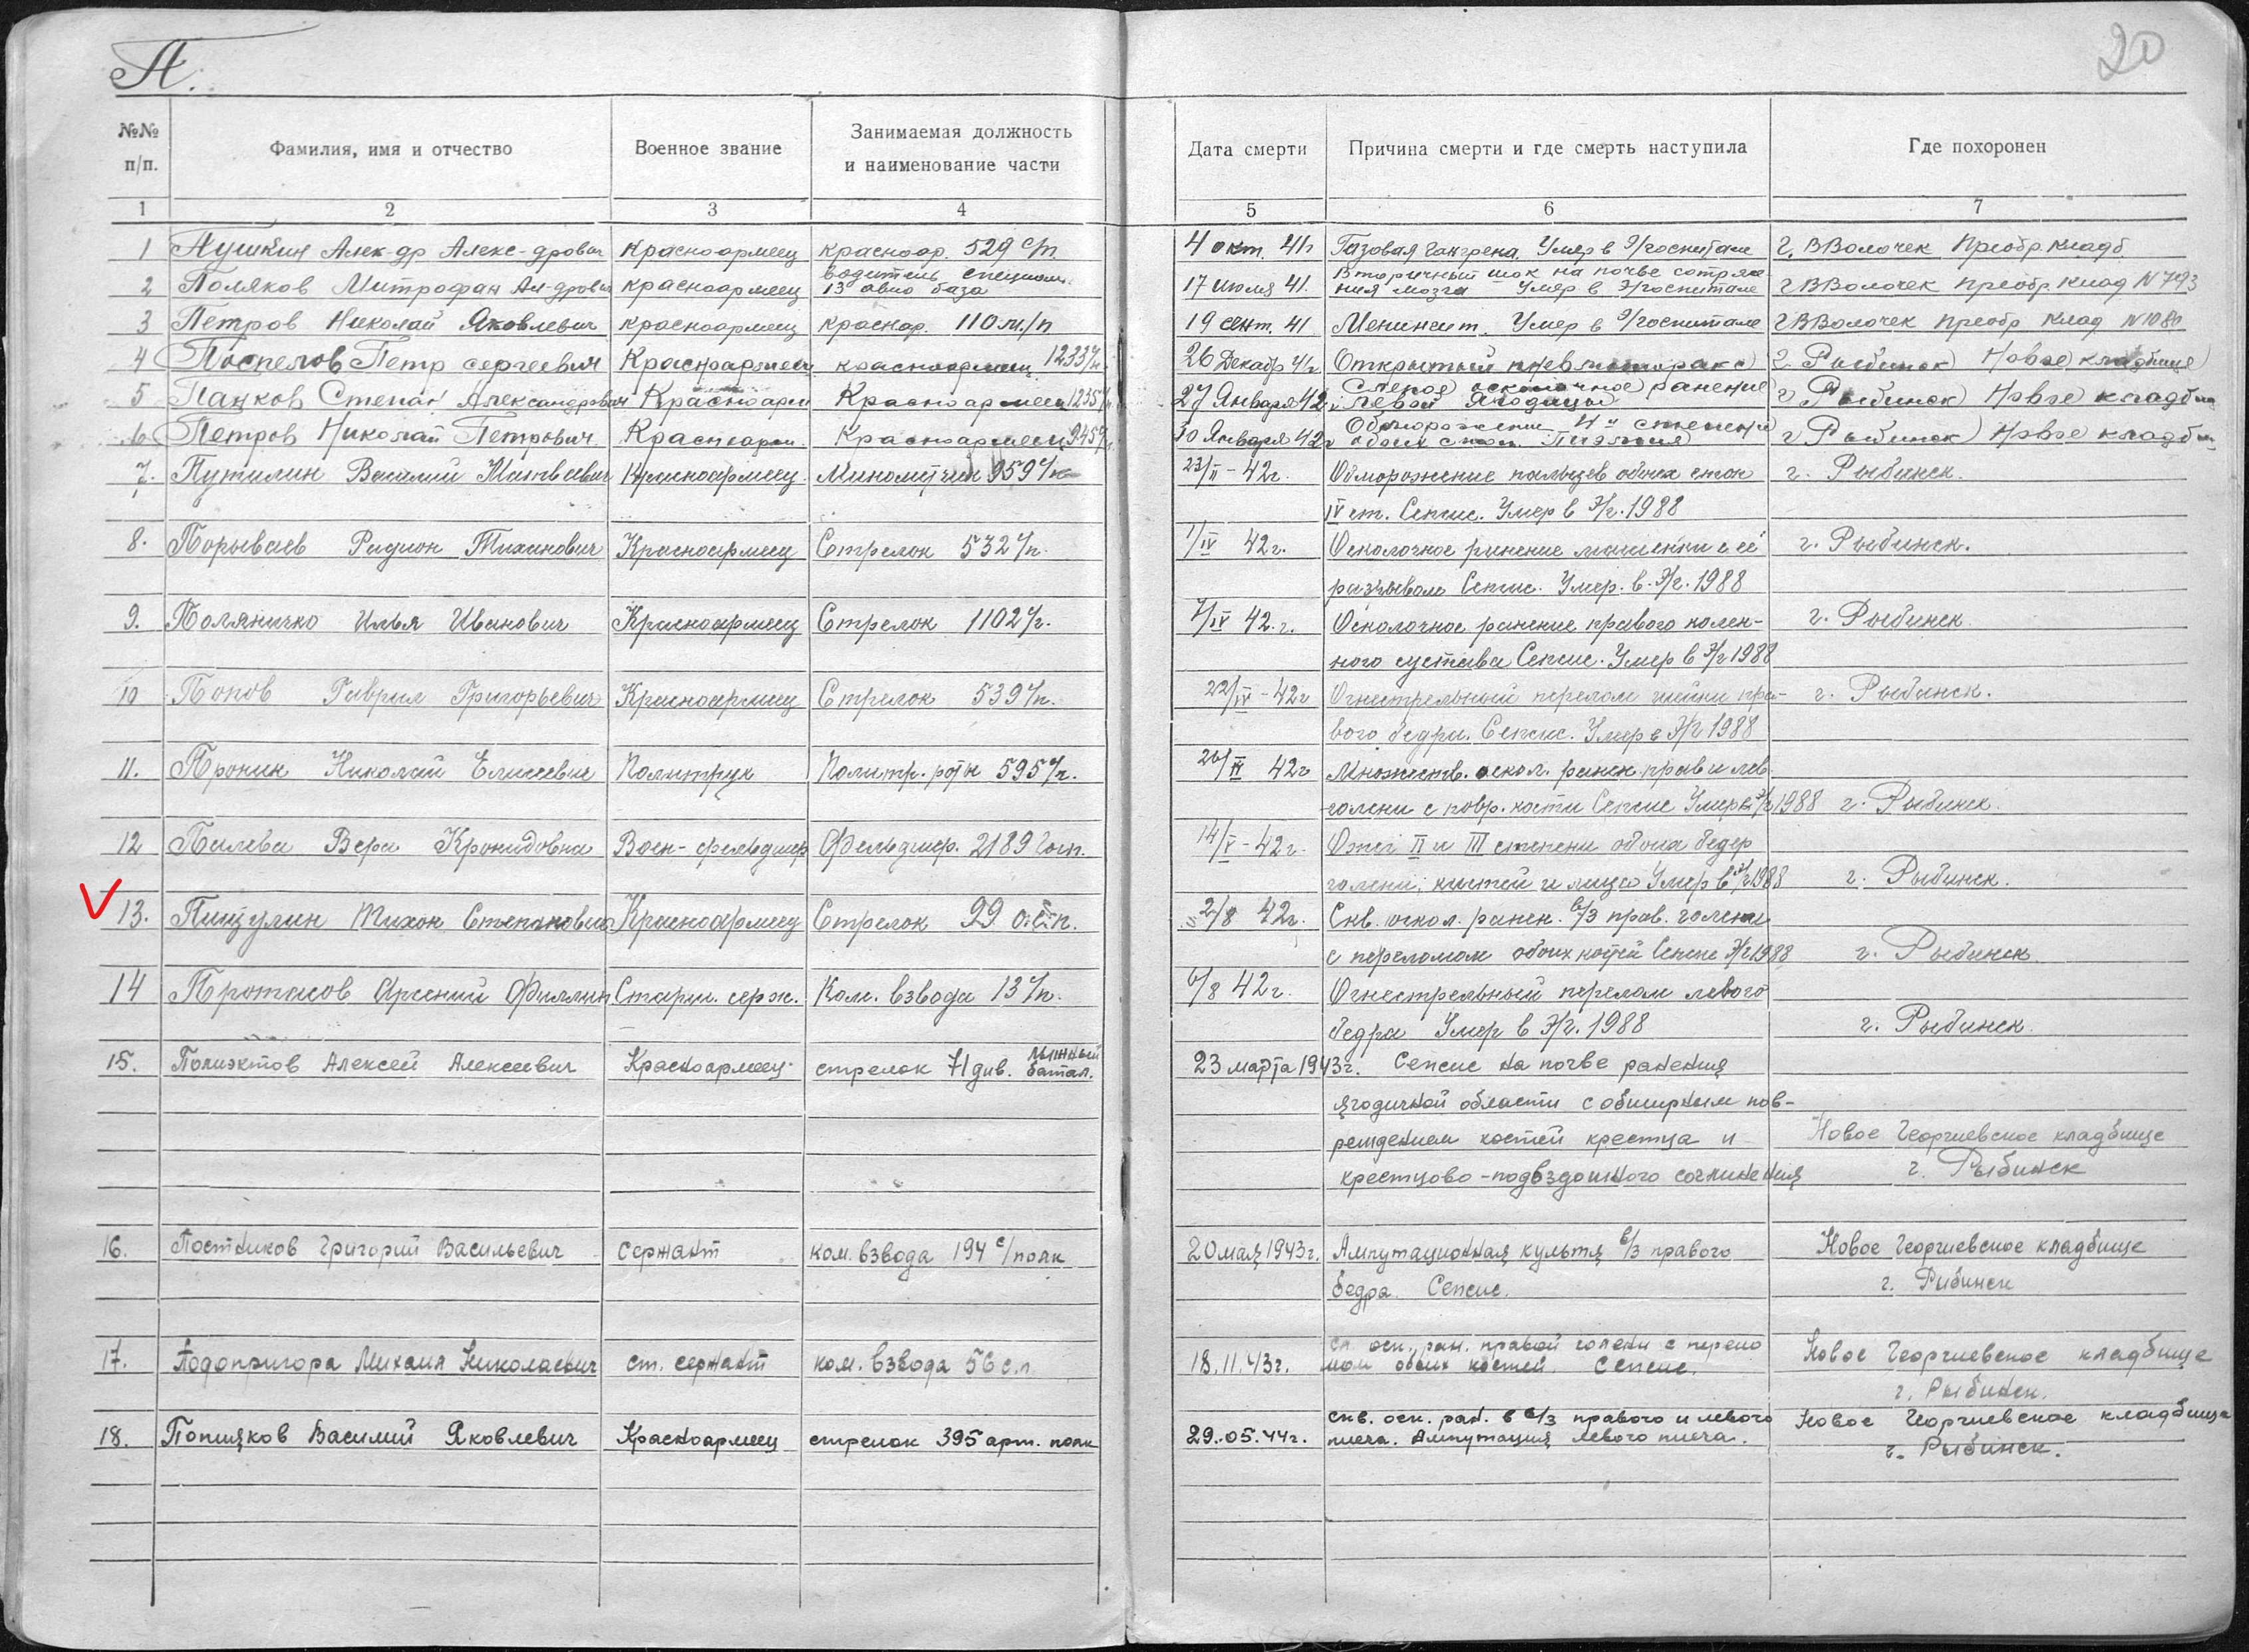 П.
20
№№ п/п.
Фамилия, имя и отчество
Военное звание
Занимаемая должность и наименование части
Дата смерти
Причина смерти и где смерть наступила
Где похоронен
1 2 3 4 5 6 7
1 Пушкин Алек-др Алекс-дрович красноармеец красноар. 529 с/п. 4 окт. 41г Газовая гангрена. Умер в э/госпитале г. ВВолочек Преобр. кладб.
водитель специальн. Вторичный шок на почве сотрясе-
2 Поляков Митрофан Ал-дрович красноармеец 13 авио база 17 июля 41. ния мозга Умер в э/госпитале г ВВолочек преобр. клад N 793
3 Петров Николай Яковлевич красноармеец краснар. 110 м/п 19 сент. 41 Менингит. Умер в э/госпитале г ВВолочек преобр клад N 1080
4 Поспелов Петр сергеевич Красноармеец красноармеец 1233 /п. 26 Декабр 41г Открытый пневматоракс г. Рыбинск Новое кладбище
Слепое осколочное ранение
5 Панков Степан Александрович Красноарм Красноармеец 1235 /п 27 Января 42 г. левой ягодицы г Рыбинск Новое кладбищ
Обморожение 4й степени
6 Петров Николай Петрович Красноарм. Красноармеец 945 /п 30 Января 42г обоих стоп. г Рыбинск Новое кладбищ
7. Путилин Василий Матвеевич Красноармеец. Минометчик 959 с/п 23/II - 42г. Обморожение пальцев обоих стоп г. Рыбинск.
IV ст. Сепсис. Умер в э/г. 1988
8. Порываев Родион Тихинович Красноармеец Стрелок 532 с/п. 1/IV 42г. Осколочное ранение мошенки с её г. Рыбинск.
разрывом Сепсис. Умер. в. э/г. 1988
9. Поляничко Илья Иванович Красноармеец Стрелок 1102 с/п. 7/IV 42.г. Осколочное ранение правого колен- г. Рыбинск.
ного сустава Сепсис. Умер в э/г 1988
10 Попов Гаврил Григорьевич Красноармеец Стрелок 539 с/п. 22/IV - 42г Огнестрельный перелом шейки пра- г. Рыбинск.
вого бедра. Сепсис. Умер в э/г 1988
11. Пронин Николай Елисеевич Политрук Политр. роты 595 с/п. 42г Множеств. оскол. ранен. прав и лев.
голени с повр. кости Сепсис Умер в э/г 1988 г. Рыбинск.
12 Палева Вера Кронидовна Воен-фельдшер Фельдшер. 2189 Госп. 14/V - 42г. Ожег II и III степени обоих бедер
голени, кистей и лица Умер в э/г 1988 г. Рыбинск.
13. Пищулин Тихон Степанович Красноармеец Стрелок 29 о.с.п. 2/8 42г. Скв. оскол. ранен. в/3 прав. голени
с переломом обоих костей Сепсис э/г 1988 г. Рыбинск
14 Протасов Арсений Филлип Старш. серж. Ком. взвода 13 с/п. 6/8 42г. Огнестрельный перелом левого
бедра Умер в э/г. 1988 г. Рыбинск.
15. Полиэктов Алексей Алексеевич Красноармеец стрелок 71 див. лыжный батал. 23 марта 1943г. Сепсис на почве ранения
ягодичной области с обширным пов-
реждением костей крестца и Новое Георгиевское кладбище
крестцово-подвздошного сочленения г. Рыбинск
16. Постников Григорий Васильевич Сержант ком. взвода 194 с/полк 20 мая 1943г. Ампутационная культя в/3 правого Новое Георгиевское кладбище
бедра. Сепсис. г. Рибинск
Сл. оск. ран. правой голени с перело
17. Подопригора Михаил Николаевич ст. сержант ком. взвода 56 с.п. 18.11.43г. мом обоих костей. Сепсис. Новое Георгиевское кладбище
г. Рыбинск.
скв. оск. ран. в в/3 правого и левого
18. Поляков Василий Яковлевич Красноармеец стрелок 395 арт. полк 29.05.44г. плеча. Ампутация левого плеча. Новое Георгиевское кладбище
г. Рыбинск.